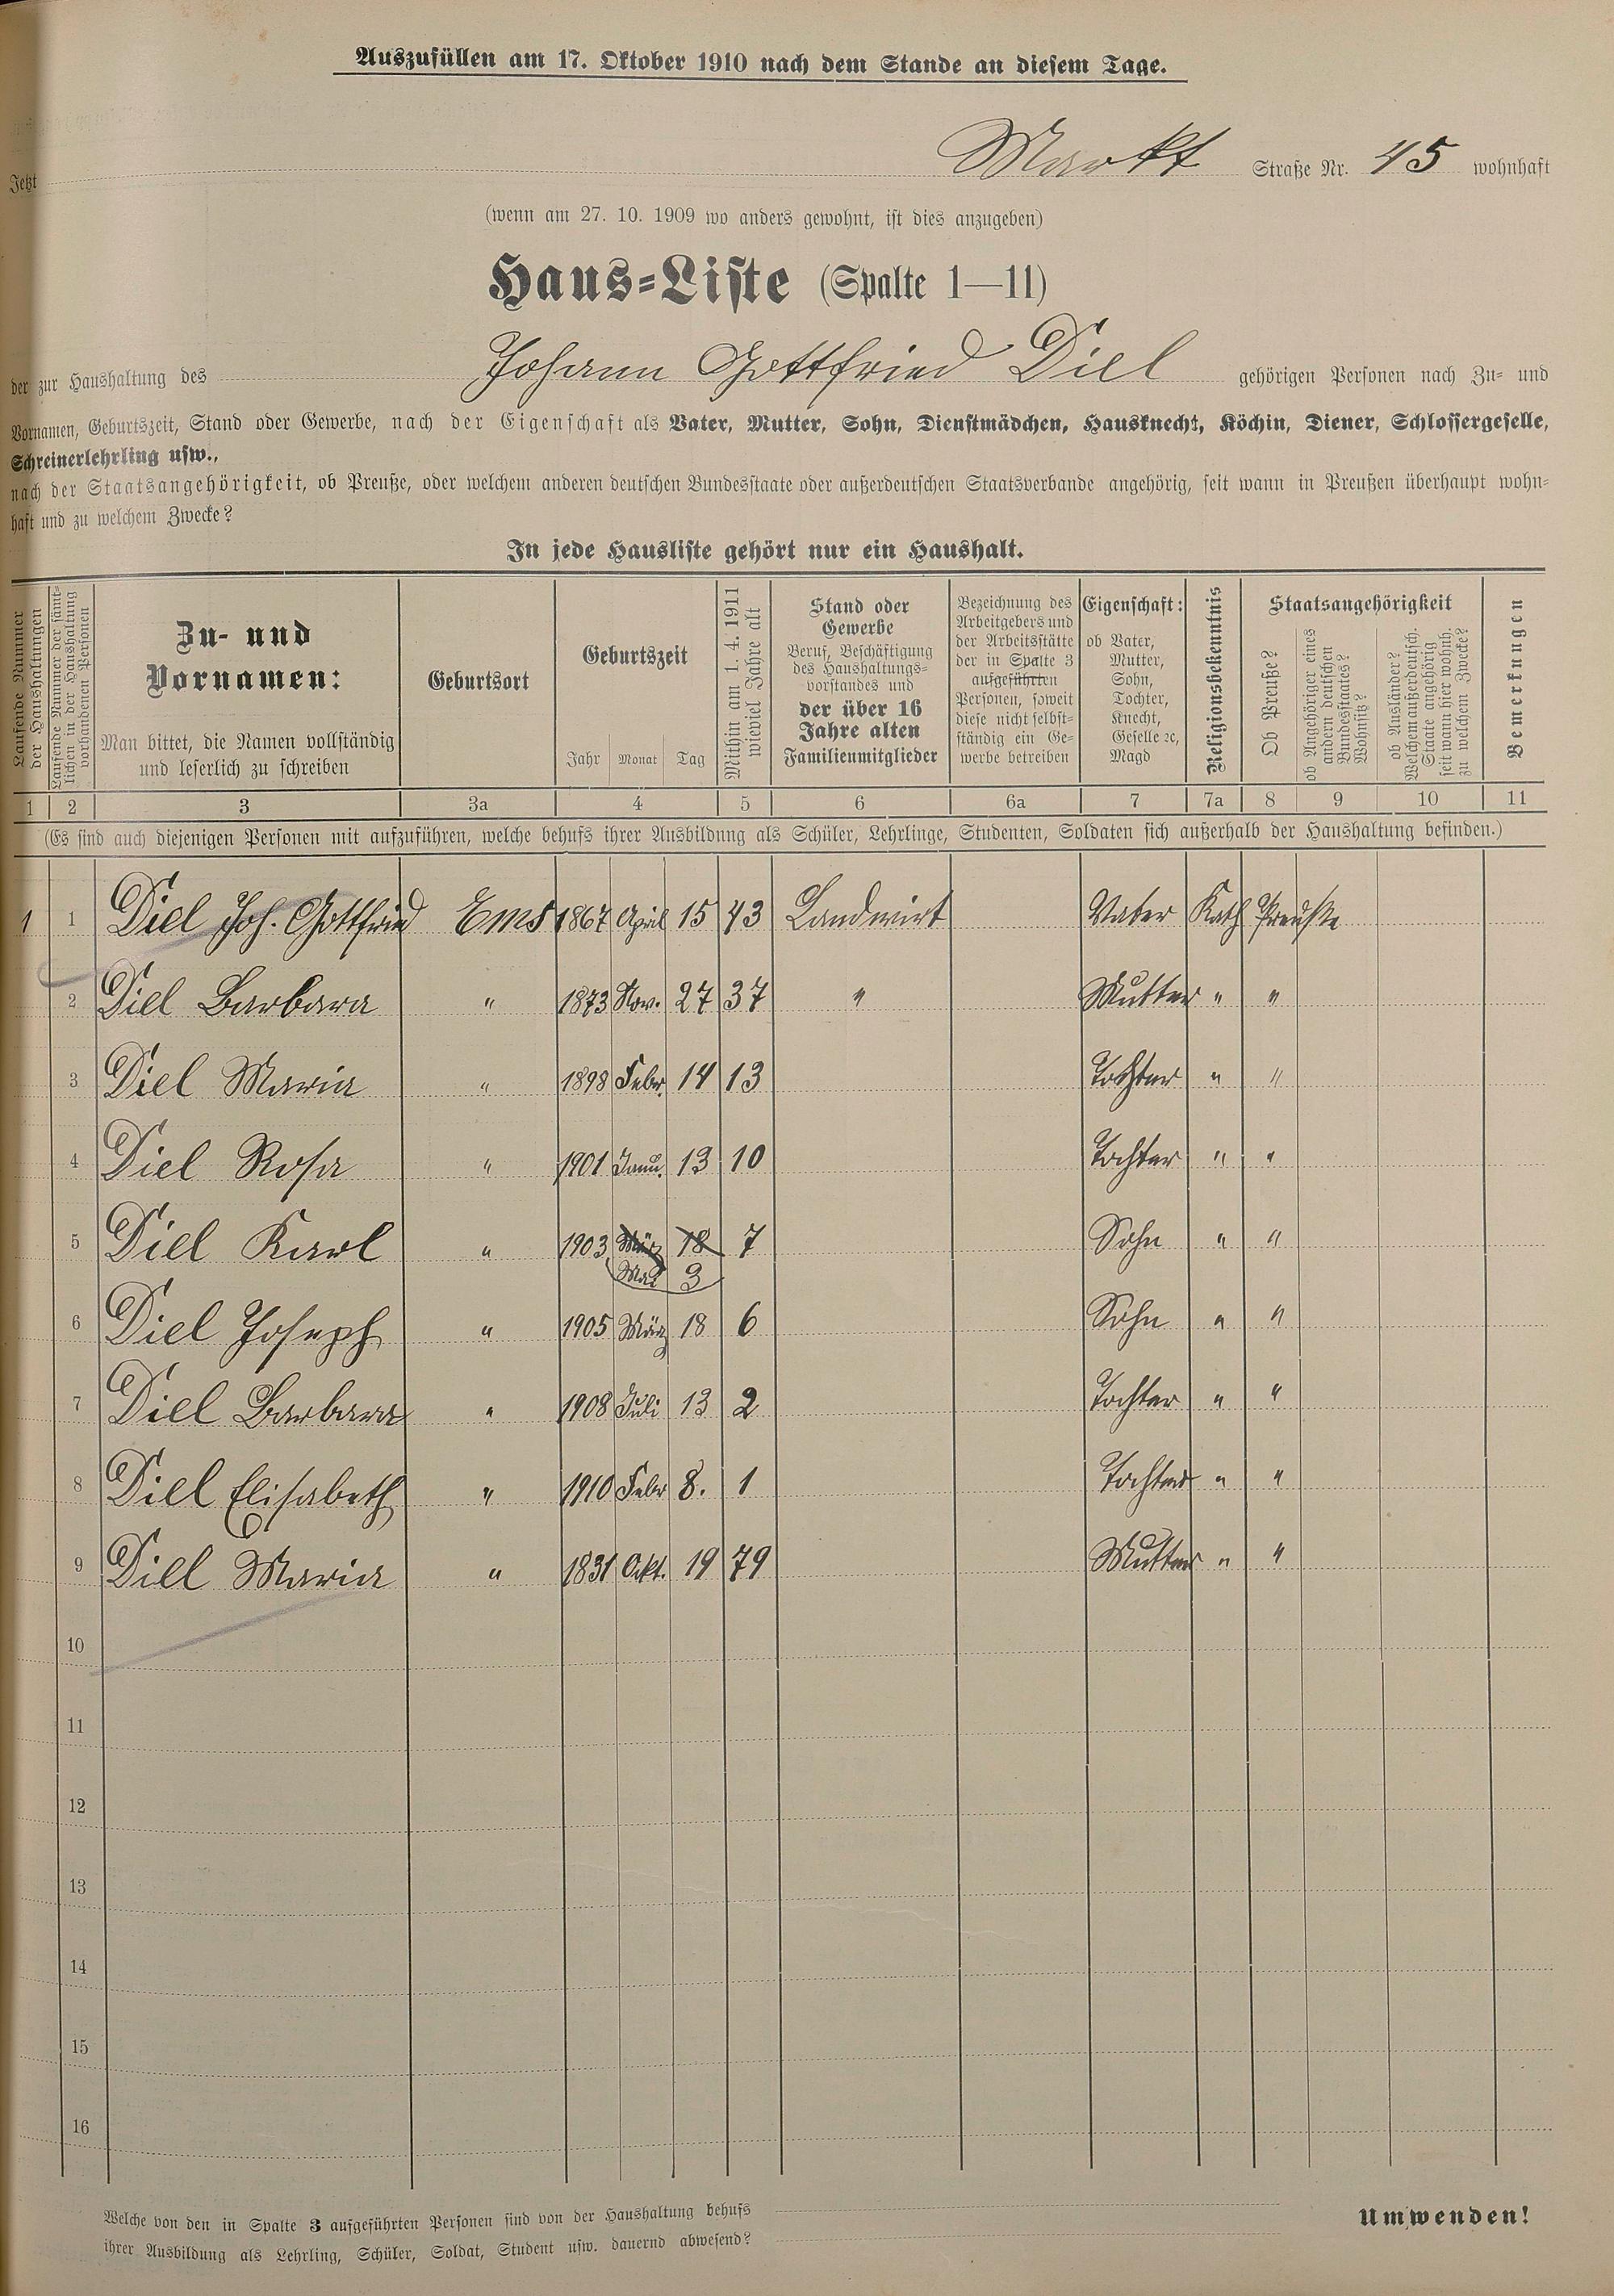 Auszufüllen am 17. Oktober 1910 nach dem Stande an diesem Tage.
Jetzt Markt Straße Nr. 45 wohnhaft
(wenn am 27. 10. 1909 wo anders gewohnt, ist dies anzugeben)
Haus-Liste (Spalte 1—11)
der zur Haushaltung des Johann Gottfried Diel gehörigen Personen nach Zu- und
Vornamen, Geburtszeit, Stand oder Gewerbe, nach der Eigenschaft als Vater, Mutter, Sohn, Dienstmädchen, Hausknecht, Köchin, Diener, Schlossergeselle,
Schreinerlehrling usw.,
nach der Staatsangehörigkeit, ob Preuße, oder welchem anderen deutschen Bundesstaate oder außerdeutschen Staatsverbande angehörig, seit wann in Preußen überhaupt wohn-
haft und zu welchem Zwecke?
In jede Hausliste gehört nur ein Haushalt.
Laufende Nummer
der Haushaltungen
Laufende Nummer der sämt-
lichen in der Haushaltung
vorhandenen Personen
Zu- und
Vornamen:
Man bittet, die Namen vollständig
und leserlich zu schreiben
Geburtsort
Geburtszeit
Jahr Monat Tag
Mithin am 1. 4. 1911
wieviel Jahre alt
Stand oder
Gewerbe
Beruf, Beschäftigung
des Haushaltungs-
vorstandes und
der über 16
Jahre alten
Familienmitglieder
Bezeichnung des
Arbeitgebers und
der Arbeitsstätte
der in Spalte 3
aufgeführten
Personen, soweit
diese nicht selbst-
ständig ein Ge-
werbe betreiben
Eigenschaft:
ob Vater,
Mutter,
Sohn,
Tochter,
Knecht,
Geselle ꝛc,
Magd
Religionsbekenntnis
Staatsangehörigkeit
Ob Preuße?
ob Angehöriger eines
andern deutschen
Bundesstaates?
Wohnsitz?
ob Ausländer?
Welchem außerdeutsch.
Staate angehörig
seit wann hier wohnh.
zu welchem Zwecke?
Bemerkungen
1 2 3 3a 4 5 6 6a 7 7a 8 9 10 11
(Es sind auch diejenigen Personen mit aufzuführen, welche behufs ihrer Ausbildung als Schüler, Lehrlinge, Studenten, Soldaten sich außerhalb der Haushaltung befinden.)
1 1 Diel Joh. Gottfried Ems 1867 April 15 43 Landwirt Vater Kath Preuße
2 Diel Barbara " 1873 Nov. 27 37 " Mutter " "
3 Diel Maria " 1898 Febr. 14 13 Tochter " "
4 Diel Rosa " 1901 Janu. 13 10 Tochter " "
5 Diel Karl " 1903 März 18 7 Sohn " "
Mai 3
6 Diel Joseph " 1905 März 18 6 Sohn " "
7 Diel Barbara " 1908 Juli 13 2 Tochter " "
8 Diel Elisabeth " 1910 Febr 8. 1 Tochter " "
9 Diel Maria " 1831 Okt. 19 79 Mutter " "
10
11
12
13
14
15
16
Welche von den in Spalte 3 aufgeführten Personen sind von der Haushaltung behufs
ihrer Ausbildung als Lehrling, Schüler, Soldat, Student usw. dauernd abwesend?
Umwenden!